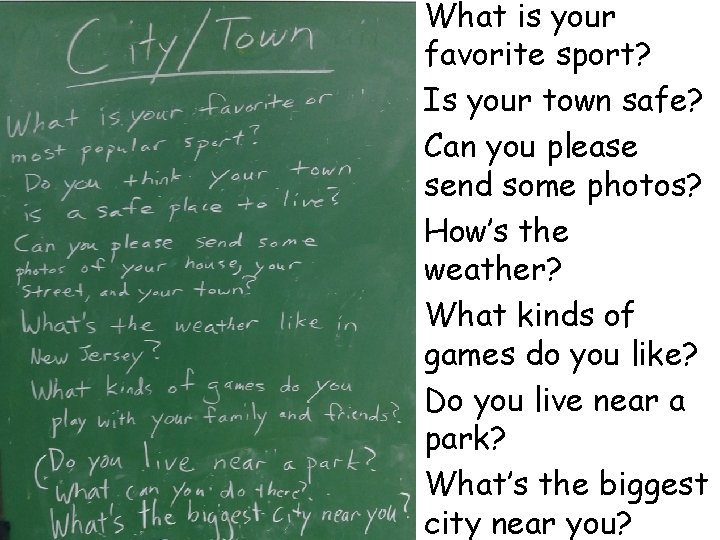 City/Town
What is your favorite or
most popular sport?
Do you think your town
is a safe place to live?
Can you please send some
photos of your house, your
street, and your town?
What's the weather like in
New Jersey?
What kinds of games do you
play with your family and friends?
(Do you live near a park?
What can you do there?
What's the biggest city near you?
What is your
favorite sport?
Is your town safe?
Can you please
send some photos?
How’s the
weather?
What kinds of
games do you like?
Do you live near a
park?
What’s the biggest
city near you?